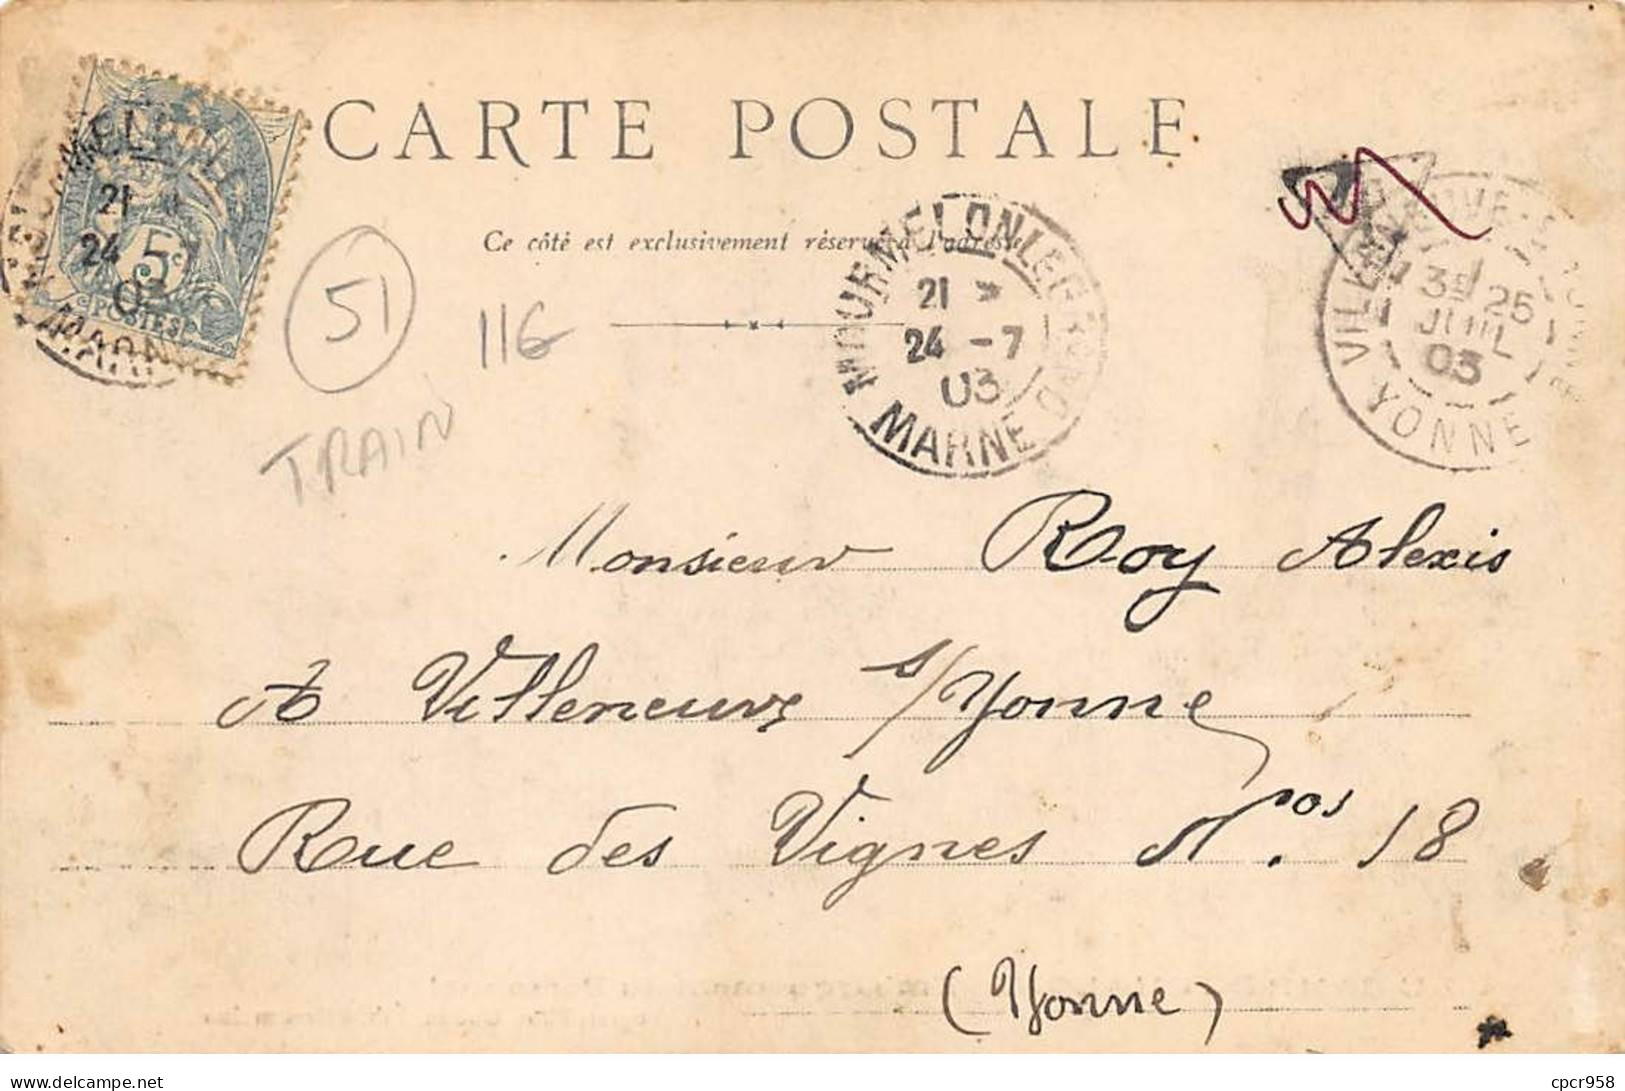 CARTE POSTALE
Ce côté est exclusivement réservé à l'adresse
5c
POSTES
21
24
03
51
116
TRAIN
MOURMELON LE GRAND
21
24 - 7
03
MARNE
3E 25
JUIL
03
YONNE
Monsieur Roy Alexis
A Villeneuve s/Yonne
Rue des Vignes N.os 18
(Yonne)
cpcr958